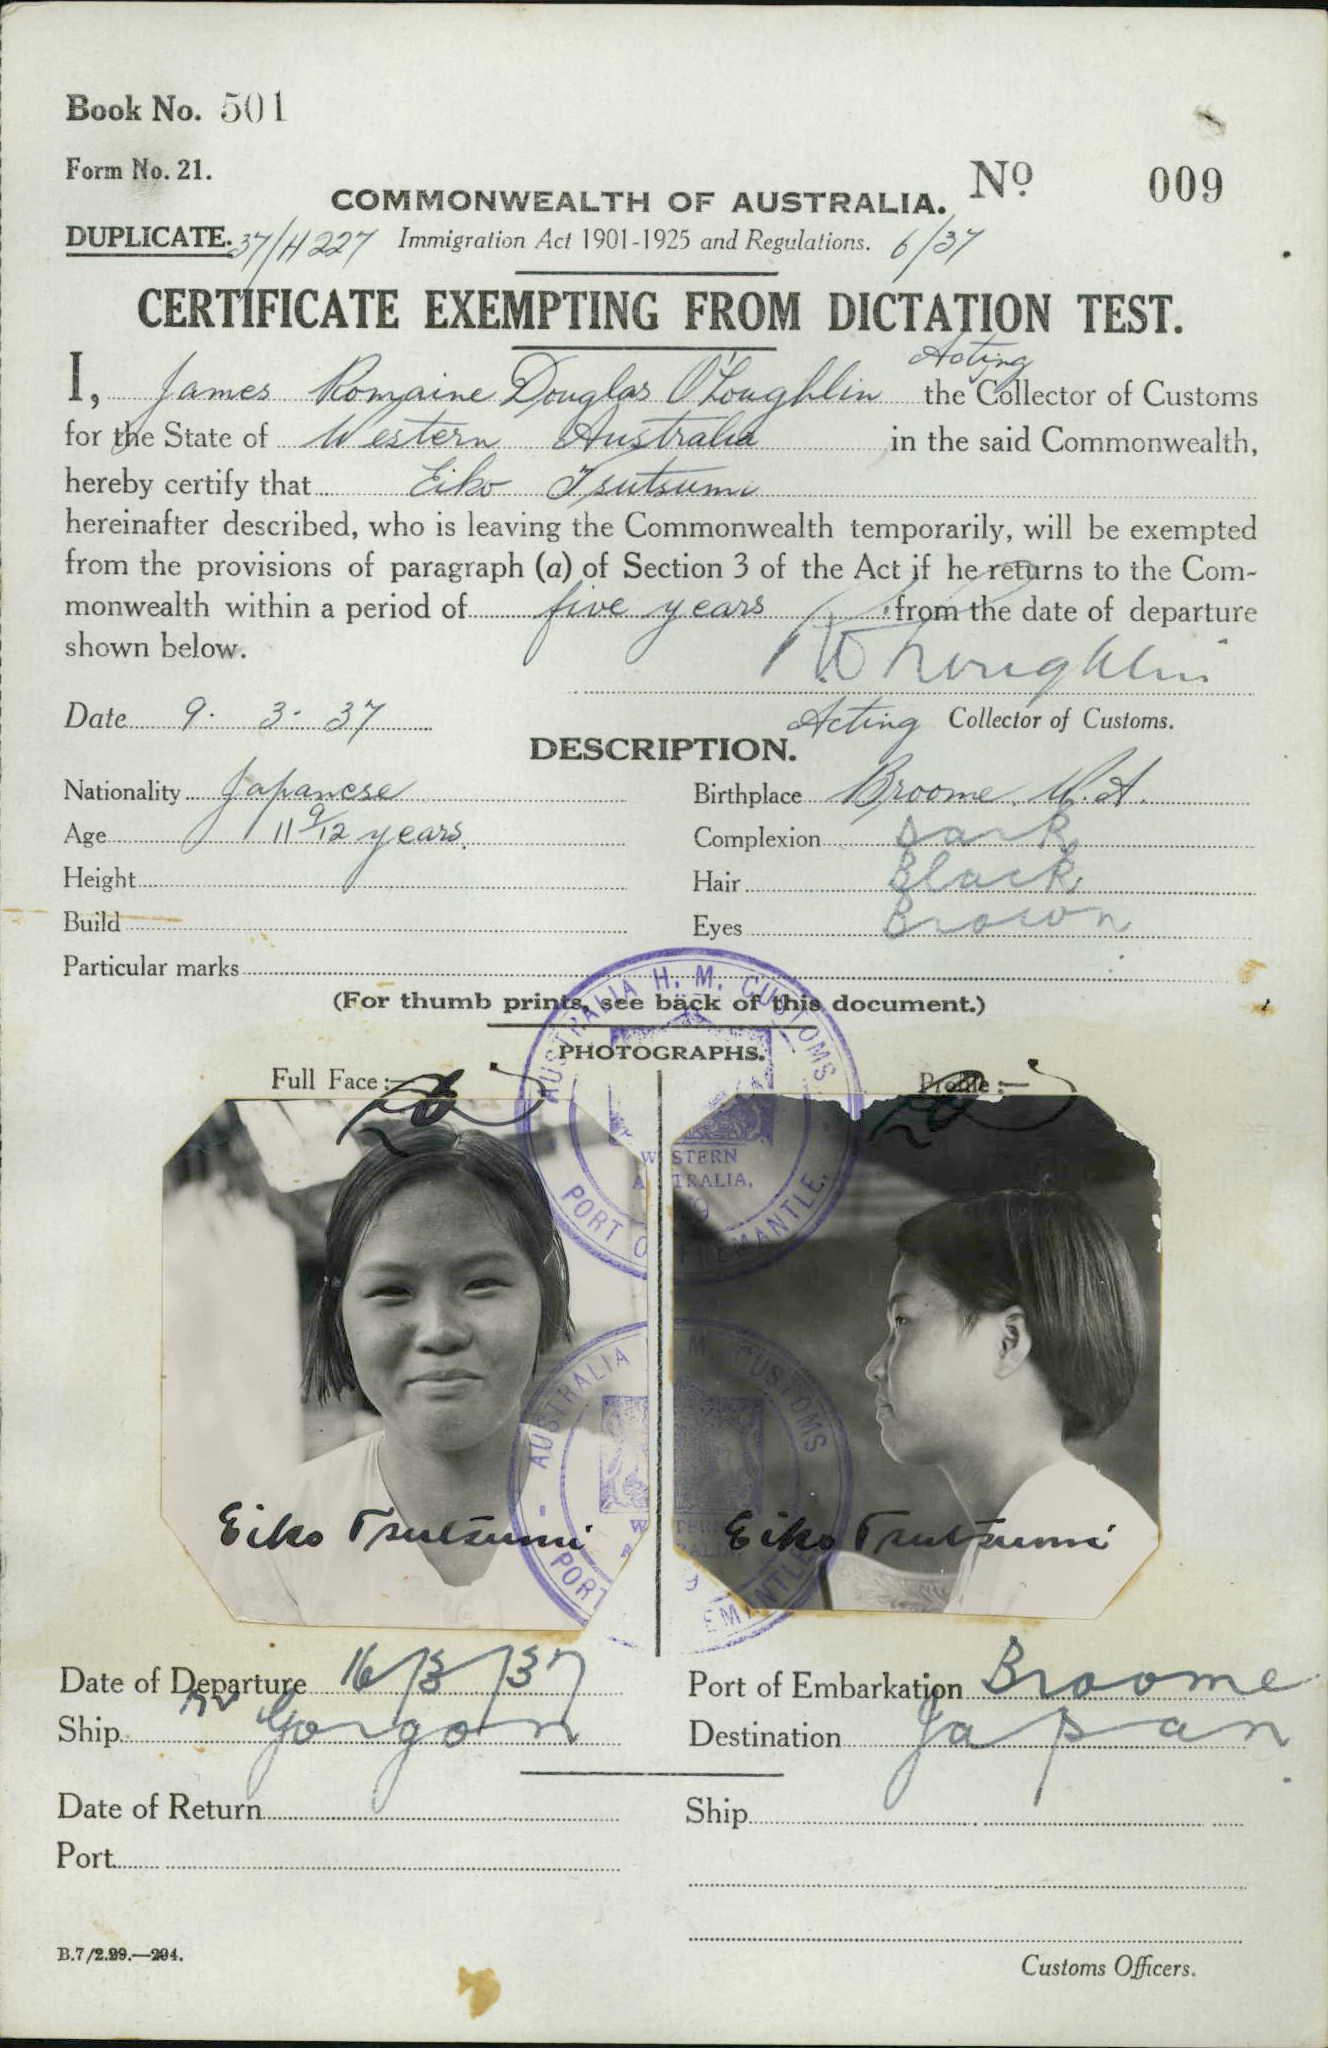 Book No. 501
Form No. 21.
No. 009
COMMONWEALTH OF AUSTRALIA.
DUPLICATE. 37/H227 Immigration Act 1901-1925 and Regulations. 6/37
CERTIFICATE EXEMPTING FROM DICTATION TEST.
Acting
I, James Romaine Douglas O'Loughlin the Collector of Customs
for the State of Western Australia in the said Commonwealth,
hereby certify that Eiko Tsutsumi
hereinafter described, who is leaving the Commonwealth temporarily, will be exempted
from the provisions of paragraph (a) of Section 3 of the Act if he returns to the Com-
monwealth within a period of five years from the date of departure
shown below.
Date 9. 3. 37 Acting Collector of Customs.
DESCRIPTION.
Nationality Japanese Birthplace Broome. W.A.
Age 11 9/12 years. Complexion Dark
Height Hair Black
Build Eyes Brown
Particular marks
(For thumb prints, see back of this document.)
PHOTOGRAPHS.
Full Face:— Profile:—
AUSTRALIA H. M. CUSTOMS
WESTERN
AUSTRALIA.
PORT OF FREMANTLE.
AUSTRALIA H. M. CUSTOMS
PORT FREMANTLE
Eiko Tsutsumi Eiko Tsutsumi
Date of Departure 16/3/37 Port of Embarkation Broome
Ship mv Gorgon Destination Japan
Date of Return Ship
Port
B.7/2.29.—294.
Customs Officers.